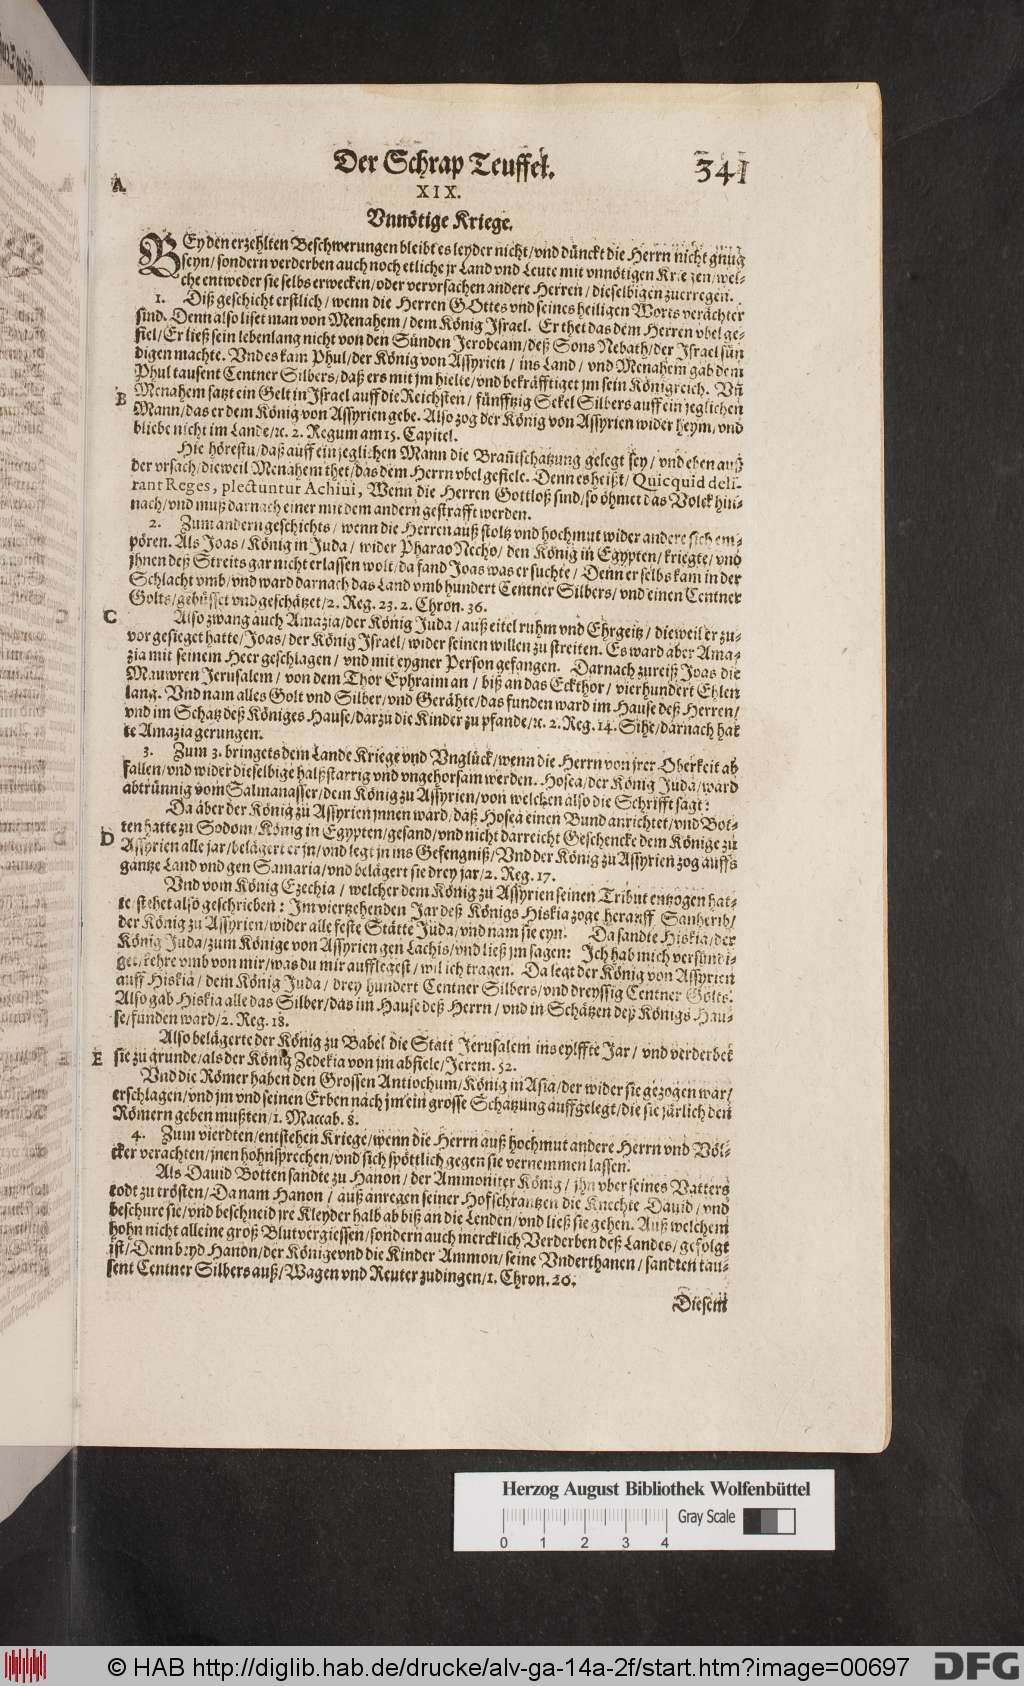 Der Schrap Teuffel. 341
A
XIX.
Vnnötige Kriege.
BEy den erzehlten Beschwerungen bleibt es leyder nicht/vnd dünckt die Herrn nicht gnug
seyn/sondern verderben auch noch etliche jr Land vnd Leute mit vnnötigen Kriegen/wel-
che entweder sie selbs erwecken/oder vervrsachen andere Herren/dieselbigen zuerregen.
1. Diß geschicht erstlich/wenn die Herren GOttes vnd seines heiligen Worts verächter
sind. Denn also liset man von Menahem/dem König Israel. Er thet das dem Herren vbel ge-
fiel/Er ließ sein lebenlang nicht von den Sünden Jerobeam/deß Sons Nebath/der Israel sün
digen machte. Vnd es kam Phul/der König von Assyrien/ins Land/vnd Menahem gab dem
Phul tausent Centner Silbers/daß ers mit jm hielte/vnd bekräfftiget jm sein Königreich. Vñ
B Menahem satzt ein Gelt in Israel auff die Reichsten/fünfftzig Sekel Silbers auff ein jeglichen
Mann/das er dem König von Assyrien gebe. Also zog der König von Assyrien wider heym/vnd
bliebe nicht im Lande/ꝛc. 2. Regum am 15. Capitel.
Hie hörestu/daß auff ein jeglichen Mann die Brañtschatzung gelegt sey/vnd eben auß
der vrsach/dieweil Menahem thet/das dem Herrn vbel gefiele. Denn es heißt/Quicquid deli-
rant Reges, plectuntur Achiui, Wenn die Herren Gottloß sind/so öhmet das Volck hin-
nach/vnd muß darnach einer mit dem andern gestrafft werden.
2. Zum andern geschichts/wenn die Herren auß stoltz vnd hochmut wider andere sich em-
pören. Als Joas/König in Juda/wider Pharao Necho/den König in Egypten/kriegte/vnd
jhnen deß Streits gar nicht erlassen wolt/da fand Joas was er suchte/Denn er selbs kam in der
Schlacht vmb/vnd ward darnach das Land vmb hundert Centner Silbers/vnd einen Centner
Golts/gebüsset vnd geschätzet/2. Reg. 23. 2. Chron. 36.
C Also zwang auch Amazia/der König Juda/auß eitel ruhm vnd Ehrgeitz/dieweil er zu-
vor gesieget hatte/Joas/der König Israel/wider seinen willen zu streiten. Es ward aber Ama-
zia mit seinem Heer geschlagen/vnd mit eygner Person gefangen. Darnach zureiß Joas die
Mauwren Jerusalem/von dem Thor Ephraim an/biß an das Eckthor/vierhundert Ehlen
lang. Vnd nam alles Golt vnd Silber/vnd Gerähte/das funden ward im Hause deß Herren/
vnd im Schatz deß Königes Hause/darzu die Kinder zu pfande/ꝛc. 2. Reg. 14. Sihe/darnach hat
te Amazia gerungen.
3. Zum 3. bringets dem Lande Kriege vnd Vnglück/wenn die Herrn von jrer Oberkeit ab
fallen/vnd wider dieselbige halßstarrig vnd vngehorsam werden. Hosea/der König Juda/ward
abtrünnig vom Salmanasser/dem König zu Assyrien/von welchen also die Schrifft sagt:
Da aber der König zu Assyrien jnnen ward/daß Hosea einen Bund anrichtet/vnd Bot-
D ten hatte zu Sodom/König in Egypten/gesand/vnd nicht darreicht Geschencke dem Könige zu
Assyrien alle jar/belägert er jn/vnd legt jn ins Gefengniß/Vnd der König zu Assyrien zog auffs
gantze Land vnd gen Samaria/vnd belägert sie drey jar/2. Reg. 17.
Vnd vom König Ezechia/welcher dem König zu Assyrien seinen Tribut entzogen hat-
te stehet also geschrieben: Im viertzehenden Jar deß Königs Hiskia zoge herauff Sanherib/
der König zu Assyrien/wider alle feste Stätte Juda/vnd nam sie eyn. Da sandte Hiskia/der
König Juda/zum Könige von Assyrien gen Lachis/vnd ließ jm sagen: Ich hab mich versündi-
get/kehre vmb von mir/was du mir aufflegest/wil ich tragen. Da legt der König von Assyrien
auff Hiskia/dem König Juda/drey hundert Centner Silbers/vnd dreyssig Centner Golts.
Also gab Hiskia alle das Silber/das im Hause deß Herrn/vnd in Schätzen deß Königs Hau-
se/funden ward/2. Reg. 18.
Also belägerte der König zu Babel die Statt Jerusalem ins eylffte Jar/vnd verderbet
E sie zu grunde/als der König Zedekia von jm abfiele/Jerem. 52.
Vnd die Römer haben den Grossen Antiochum/König in Asia/der wider sie gezogen war/
erschlagen/vnd jm vnd seinen Erben nach jm ein grosse Schatzung auffgelegt/die sie järlich den
Römern geben mußten/1. Maccab. 8.
4. Zum vierdten/entstehen Kriege/wenn die Herrn auß hochmut andere Herrn vnd Völ-
cker verachten/jnen hohnsprechen/vnd sich spöttlich gegen sie vernemmen lassen.
Als Dauid Botten sandte zu Hanon/der Ammoniter König/jhn vber seines Vatters
todt zu trösten/Da nam Hanon/auß anregen seiner Hofschrantzen die Knechte Dauid/vnd
beschure sie/vnd beschneid jre Kleyder halb ab biß an die Lenden/vnd ließ sie gehen. Auß welchem
hohn nicht alleine groß Blutvergiessen/sondern auch mercklich Verderben deß Landes/gefolgt
ist/Denn beyd Hanon/der Könige vnd die Kinder Ammon/seine Vnderthanen/sandten tau-
sent Centner Silbers auß/Wagen vnd Reuter zu dingen/1. Chron. 20.
Diesem
Herzog August Bibliothek Wolfenbüttel
Gray Scale
0 1 2 3 4
© HAB http://diglib.hab.de/drucke/alv-ga-14a-2f/start.htm?image=00697
DFG